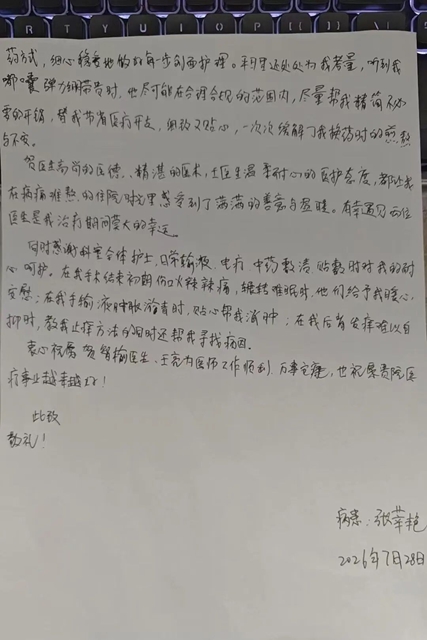 药方式，细心稳妥地做好每一步创面护理。平日里还处处为我考量，听到我
嘟囔弹力绷带贵时，他尽可能在合理合规的范围内，尽量帮我精简不必
要的开销，替我节省医疗开支，细致又贴心，一次次缓解了我换药时的煎熬
与不安。
贺医生高尚的医德、精湛的医术，王医生温柔耐心的医护态度，都让我
在病痛难熬的住院时光里感受到了满满的善意与温暖。有幸遇见两位
医生是我治疗期间莫大的幸运。
同时感谢科室全体护士，日常输液、电疗、中药熏洗、贴敷时对我的耐
心呵护。在我手术结束初期伤口火辣辣痛，辗转难眠时，他们给予我暖心
安慰；在我手输液肿胀淤青时，贴心帮我消肿；在我后背发痒难以自
抑时，教我止痒方法的同时还帮我寻找病因。
衷心祝愿贺 医生、王 医师工作顺利、万事安康，也祝愿贵院医
疗事业越来越好！
此致
敬礼！
病患：张莘艳
2026年7月28日